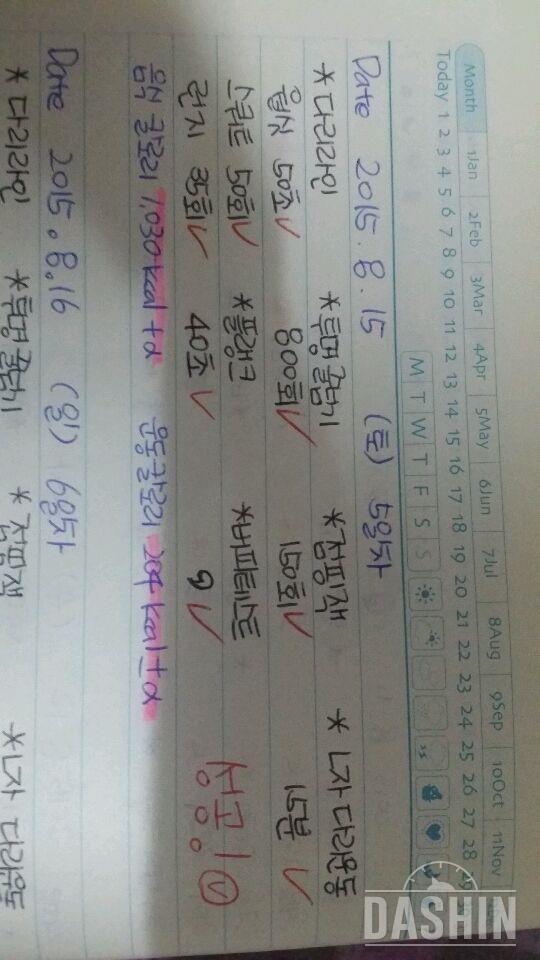 Month 1Jan 2Feb 3Mar 4Apr 5May 6Jun 7Jul 8Aug 9Sep 10Oct 11Nov
Today 1 2 3 4 5 6 7 8 9 10 11 12 13 14 15 16 17 18 19 20 21 22 23 24 25 26 27 28 29
M T W T F S S
Date 2015. 8. 15 (토) 5일차
* 다리라인 * 투명줄넘기 * 점핑잭 * L자 다리운동
월싯 50초 800회 150회 15분
스쿼트 50회 * 플랭크 * 버피테스트
런지 35회 40초 9 성공! 
음식 칼로리 1,030kcal+α 운동 칼로리 204kcal+α
Date 2015. 8. 16 (일) 6일차
* 다리라인 * 투명줄넘기 * 점핑잭 * L자 다리운동
DASHIN